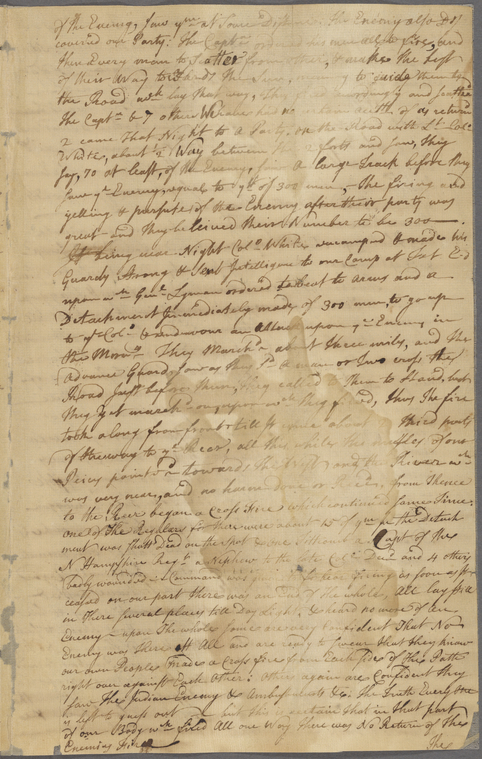 of the Enemy, saw ym at some Distance. The Enemy also Dis
covered our Party. The Captn ordered his men all to fire, and
then Every man to Scatter from other, & make the best
of their way towards the
the Road wch lay that way, They
The Captn & 7 others
2 came that Night to a Party on the Road with Lt Colo
White, about ½ Way between the 2 forts and saw, they
say, 70 at least, of the Enemy, a large Track before they
saw ye Enemy, equal to yt of 300 men, The firing and
yelling & pursute of the Enemy after their party was
great and they beleived their Number to be 300.
It being near Night Colo White encamped & made his
Guards Strong & sent Inteligence to our Camp at
upon wch Genl Lyman ordered to beat to arms and a
Detachment Immediately made of 300 men, to go up
to ye Colo & endeavour an Attack upon ye Enemy in
the Morng They Marchd about three miles, and the
Advance Guard saw as they sd a man or two cross the
Road Just before them, they called to them to stand, but
they yet marchd on, upon wch they fired, thus the fire
took along from front till it came about third part
of the way to ye Rear, all this while the muzles of our
Peices pointed towards the and the River wch
was very near, and no harm done or from thence
to the Rear began a Cross fire which continued some time
one of the Regulars for there were about 15 of ym in the Detach
ment was Shott Dead on the Spot & one a Capt of the
N Hampshire Regt a Nephew to the late Colo Decd and 4 others
badly wounded. Command was given to cease firing as soon as
ceased on our part there was an End of the whole, All lay still
in their several places till Day Light, & heard no more of the
Enemy. upon the whole some are very Confident that No
Enemy was there at All and are ready to swear that they knew
our own People Made a Cross fire from Each side of the Path
right our against Each Other: Others again are Confident they
saw the Indian Enemy & Ambushments &c. The Truth Every one
is left to guess out but this is certain that in that part
of our Body wch fired All one Way There was No Return of the
Enemies Fire
The